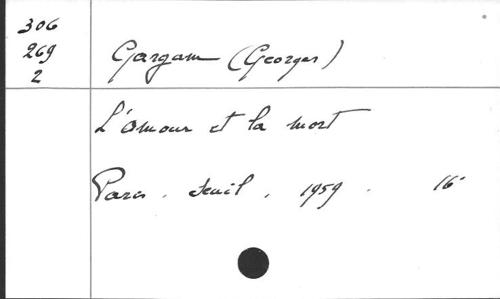 306
269
2
Gargam (Georges)
L'amour et la mort
Paris. Seuil. 1959. 16°